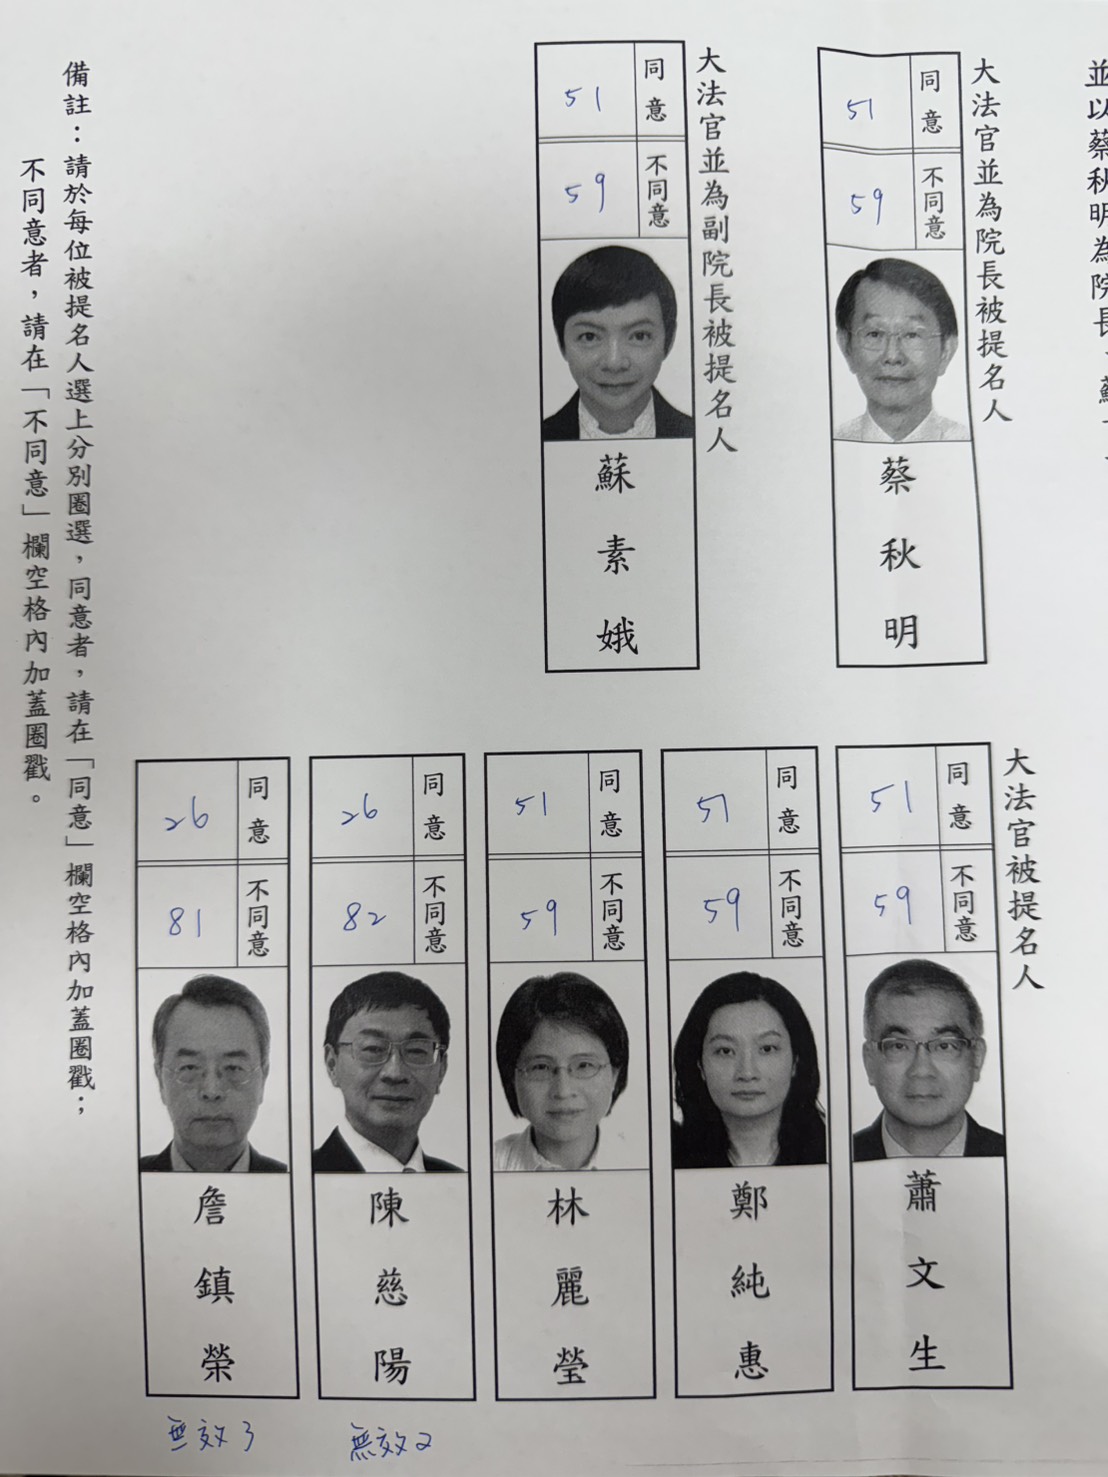 並以蔡秋明為院長、蘇
大法官並為院長被提名人
同意
51
不同意
59
蔡秋明
大法官並為副院長被提名人
同意
51
不同意
59
蘇素娥
大法官被提名人
同意
51
不同意
59
蕭文生
同意
51
不同意
59
鄭純惠
同意
51
不同意
59
林麗瑩
同意
26
不同意
82
陳慈陽
無效2
同意
26
不同意
81
詹鎮榮
無效3
備註：請於每位被提名人選上分別圈選，同意者，請在「同意」欄空格內加蓋圈戳；
不同意者，請在「不同意」欄空格內加蓋圈戳。